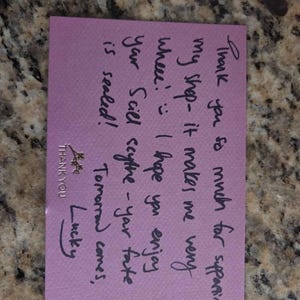 Thank you so much for
my shop - it makes me very
wheee! :) I hope you enjoy
your Sciel scythe - your fate
is sealed!
Tomorrow comes,
Lucky
THANK YOU